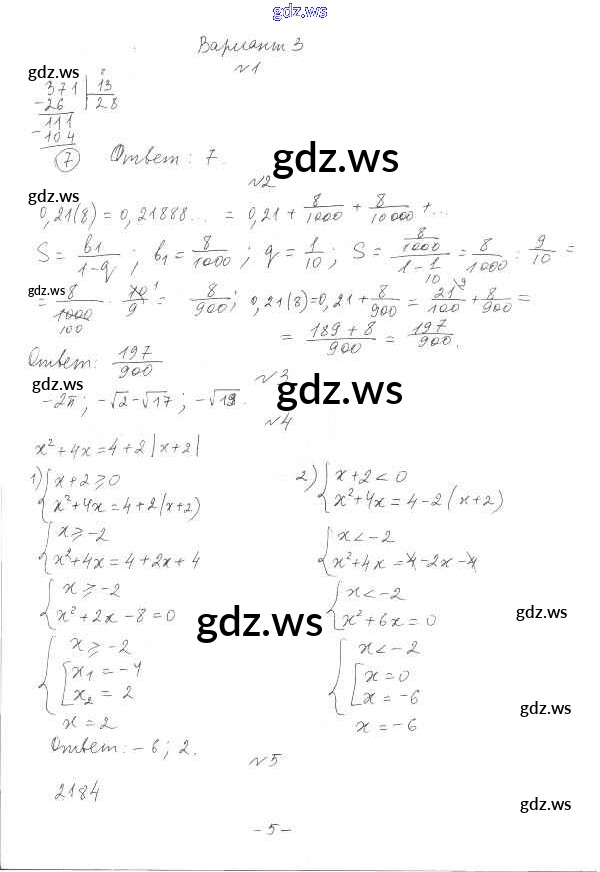 gdz.ws
Вариант 3
№1
gdz.ws
371 | 13
-26 | 28
111
-104
7 Ответ: 7.
gdz.ws
№2
gdz.ws
0,21(8) = 0,21888... = 0,21 + 8/1000 + 8/10000 + ...
S = b1/(1-q); b1 = 8/1000; q = 1/10; S = (8/1000)/(1 - 1/10) = 8/1000 : 9/10 =
gdz.ws
= 8/1000 · 10/9 = 8/900; 0,21(8) = 0,21 + 8/900 = 21/100 + 8/900 =
= (189 + 8)/900 = 197/900.
Ответ: 197/900
№3
gdz.ws
gdz.ws
-2π; -√2 - √17; -√19.
№4
x² + 4x = 4 + 2|x+2|
1) { x + 2 ⩾ 0
x² + 4x = 4 + 2(x+2)
{ x ⩾ -2
x² + 4x = 4 + 2x + 4
{ x ⩾ -2
x² + 2x - 8 = 0
{ x ⩾ -2
[ x1 = -4
x2 = 2
x = 2
2) { x + 2 < 0
x² + 4x = 4 - 2(x+2)
{ x < -2
x² + 4x = 4 - 2x - 4
{ x < -2
x² + 6x = 0
{ x < -2
[ x = 0
x = -6
x = -6
gdz.ws
gdz.ws
gdz.ws
Ответ: -6; 2.
№5
2184
gdz.ws
- 5 -